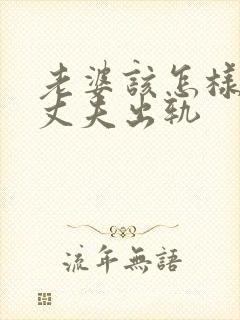 老婆該怎樣
丈夫出軌
流年無語